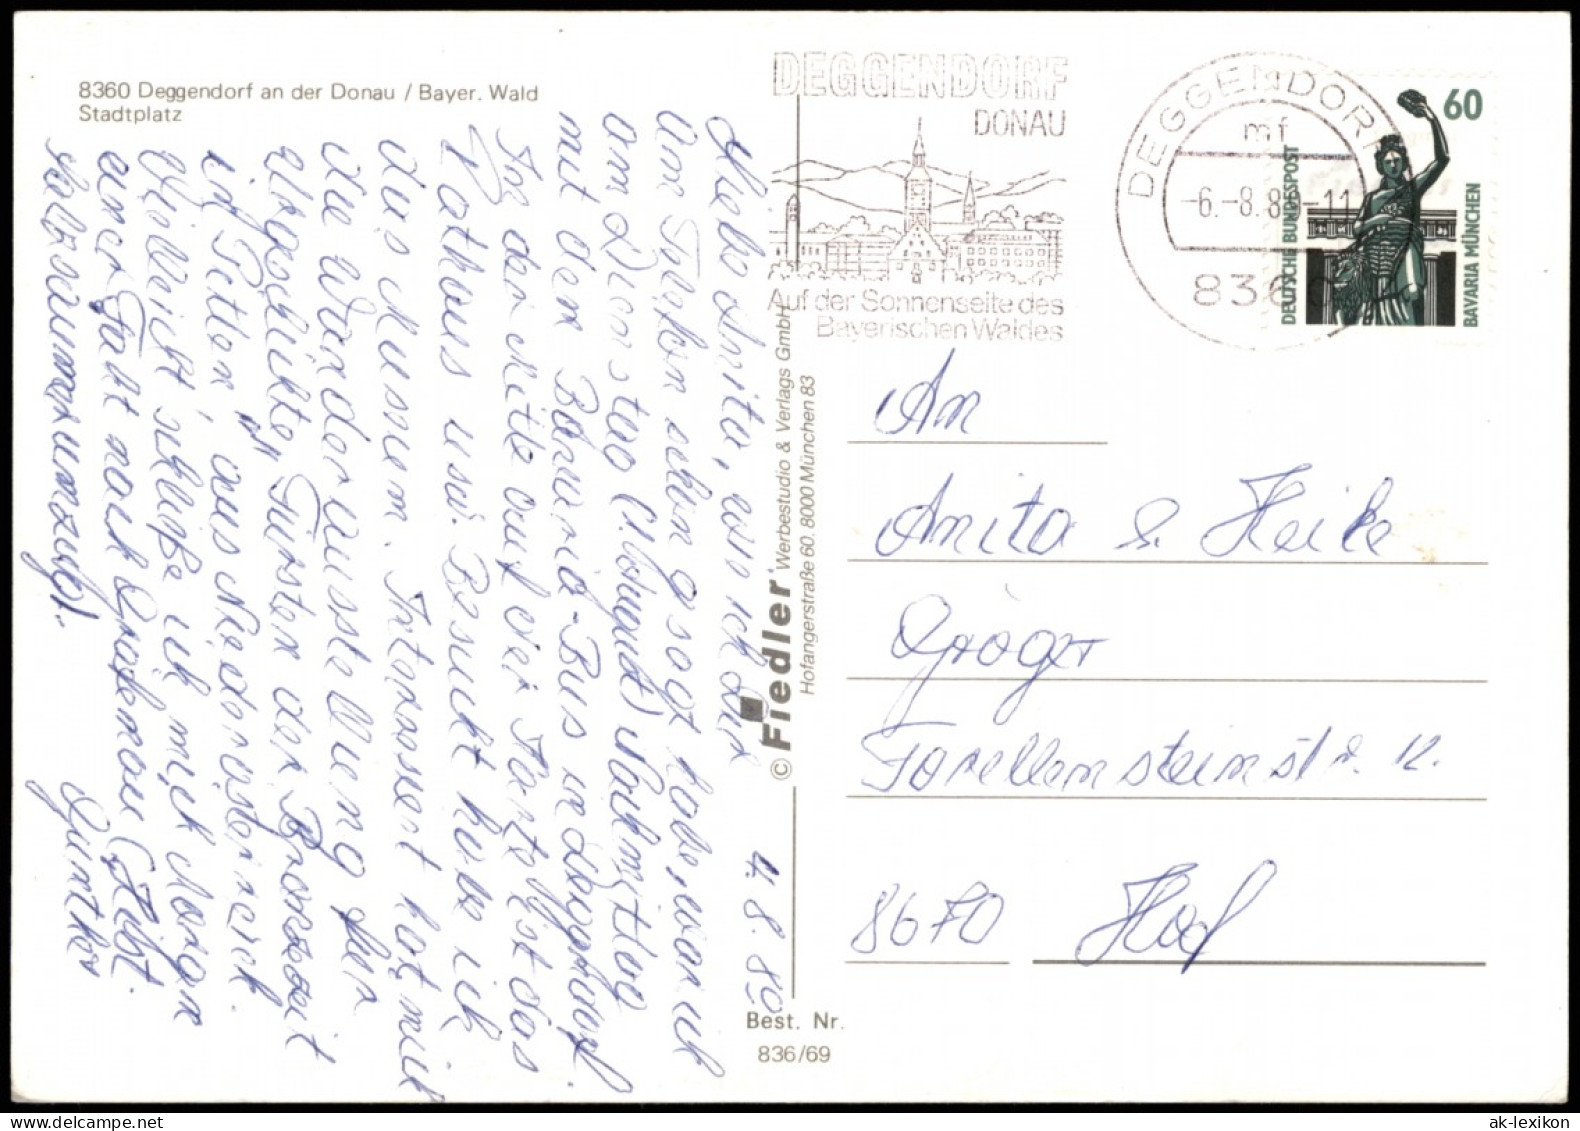 8360 Deggendorf an der Donau / Bayer. Wald
Stadtplatz
DEGGENDORF
DONAU
Auf der Sonnenseite des
Bayerischen Waldes
DEGGENDORF
mf
-6.-8.8 -11
836
60
DEUTSCHE BUNDESPOST
BAVARIA MÜNCHEN
4.8.89
Liebe Anita, wie ich dir
am Telefon schon gesagt habe, war ich
am Dienstag (1. August) Nachmittag
mit dem Bavaria-Bus in Deggendorf.
In der Mitte auf der Karte ist das
Rathaus usw. Besucht habe ich
das Museum. Interessert hat mich
die Wanderausstellung der
Urgeschichte, "Fürsten der Bronzezeit
in Pitten", aus Niederösterreich.
Vielleicht schließe ich mich Morgen
einer Fahrt nach Grafenau (Selbst.
Salzsäumerumzug).
Günther
© Fiedler Werbestudio & Verlags GmbH
Hofangerstraße 60. 8000 München 83
Best. Nr.
836/69
An
Anita & Heike
Gröger
Forellensteinstr. 12.
8670 Hof
ak-lexikon